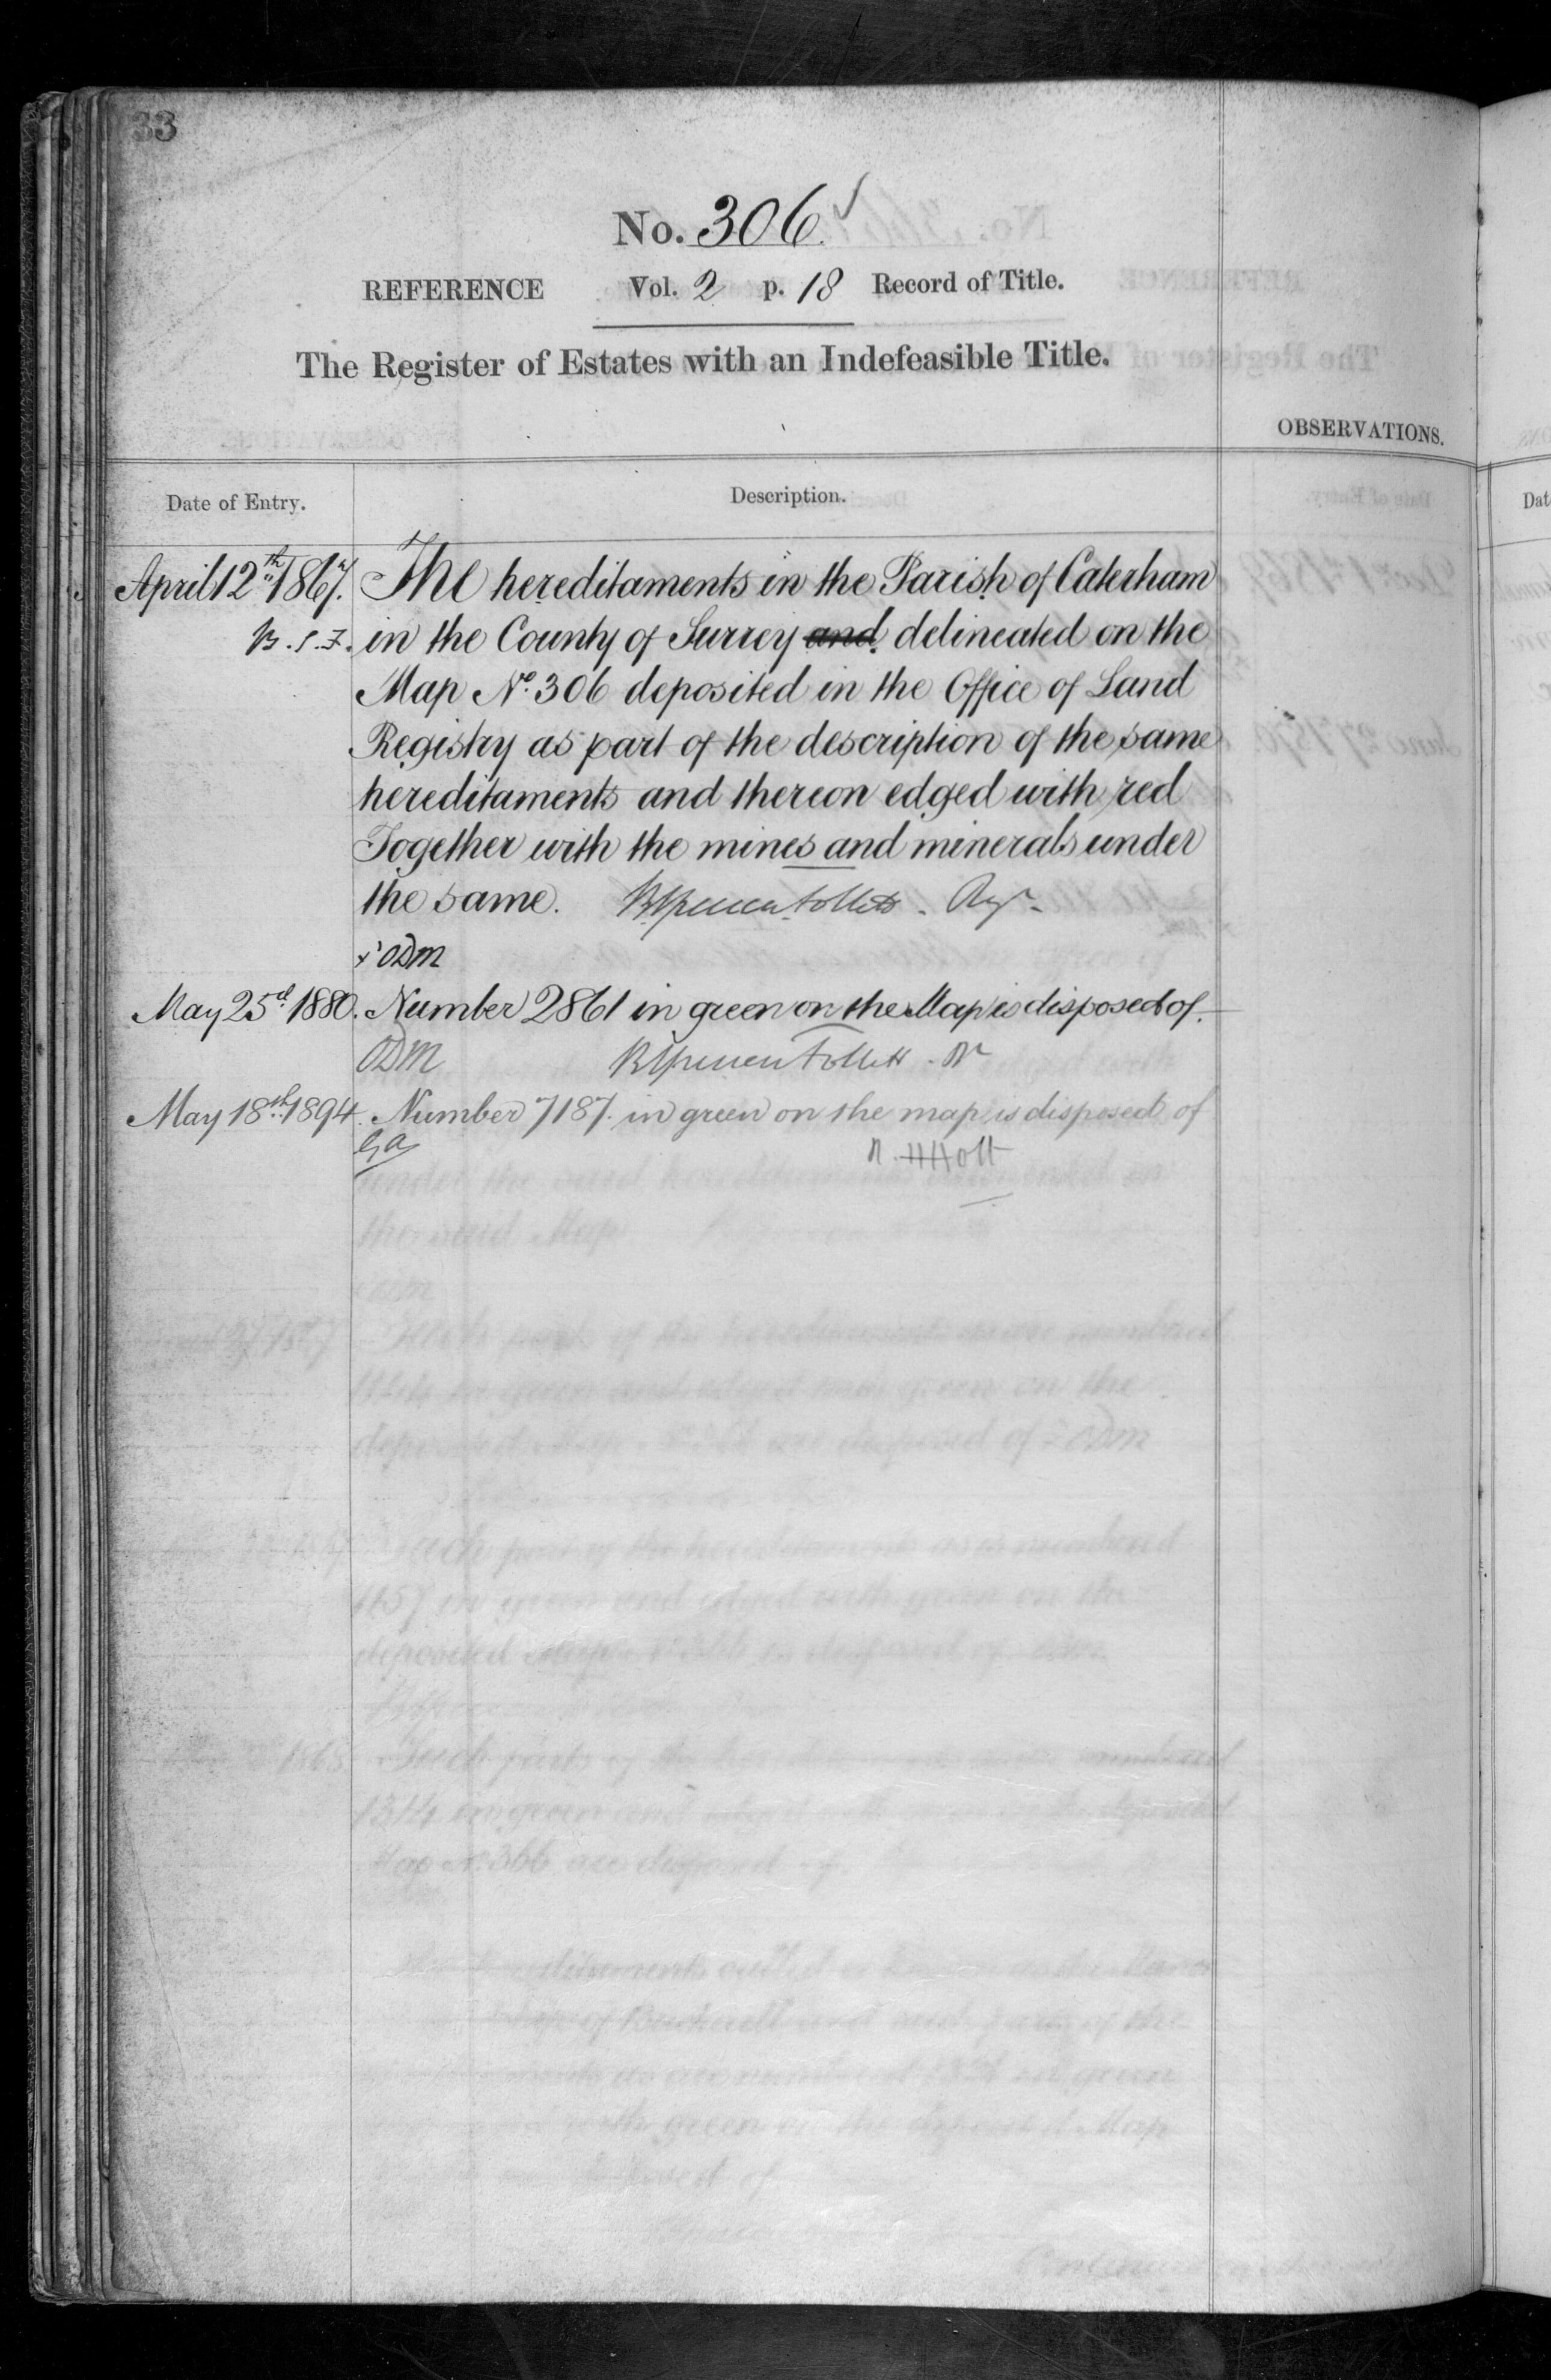 33
No. 306.
REFERENCE Vol. 2 p. 18 Record of Title.
The Register of Estates with an Indefeasible Title.
OBSERVATIONS.
Date of Entry. Description.
April 12th 1867. The hereditaments in the Parish of Caterham
B.S.F. in the County of Surrey and delineated on the
Map No. 306 deposited in the Office of Land
Registry as part of the description of the same
hereditaments and thereon edged with red
Together with the mines and minerals under
the same. B Spencer Follett - Regr.
x ODM
May 25th 1880. Number 2861 in green on the Map is disposed of.
ODM B Spencer Follett - Rr
May 18th 1894. Number 7187. in green on the map is disposed of
R. H Holt